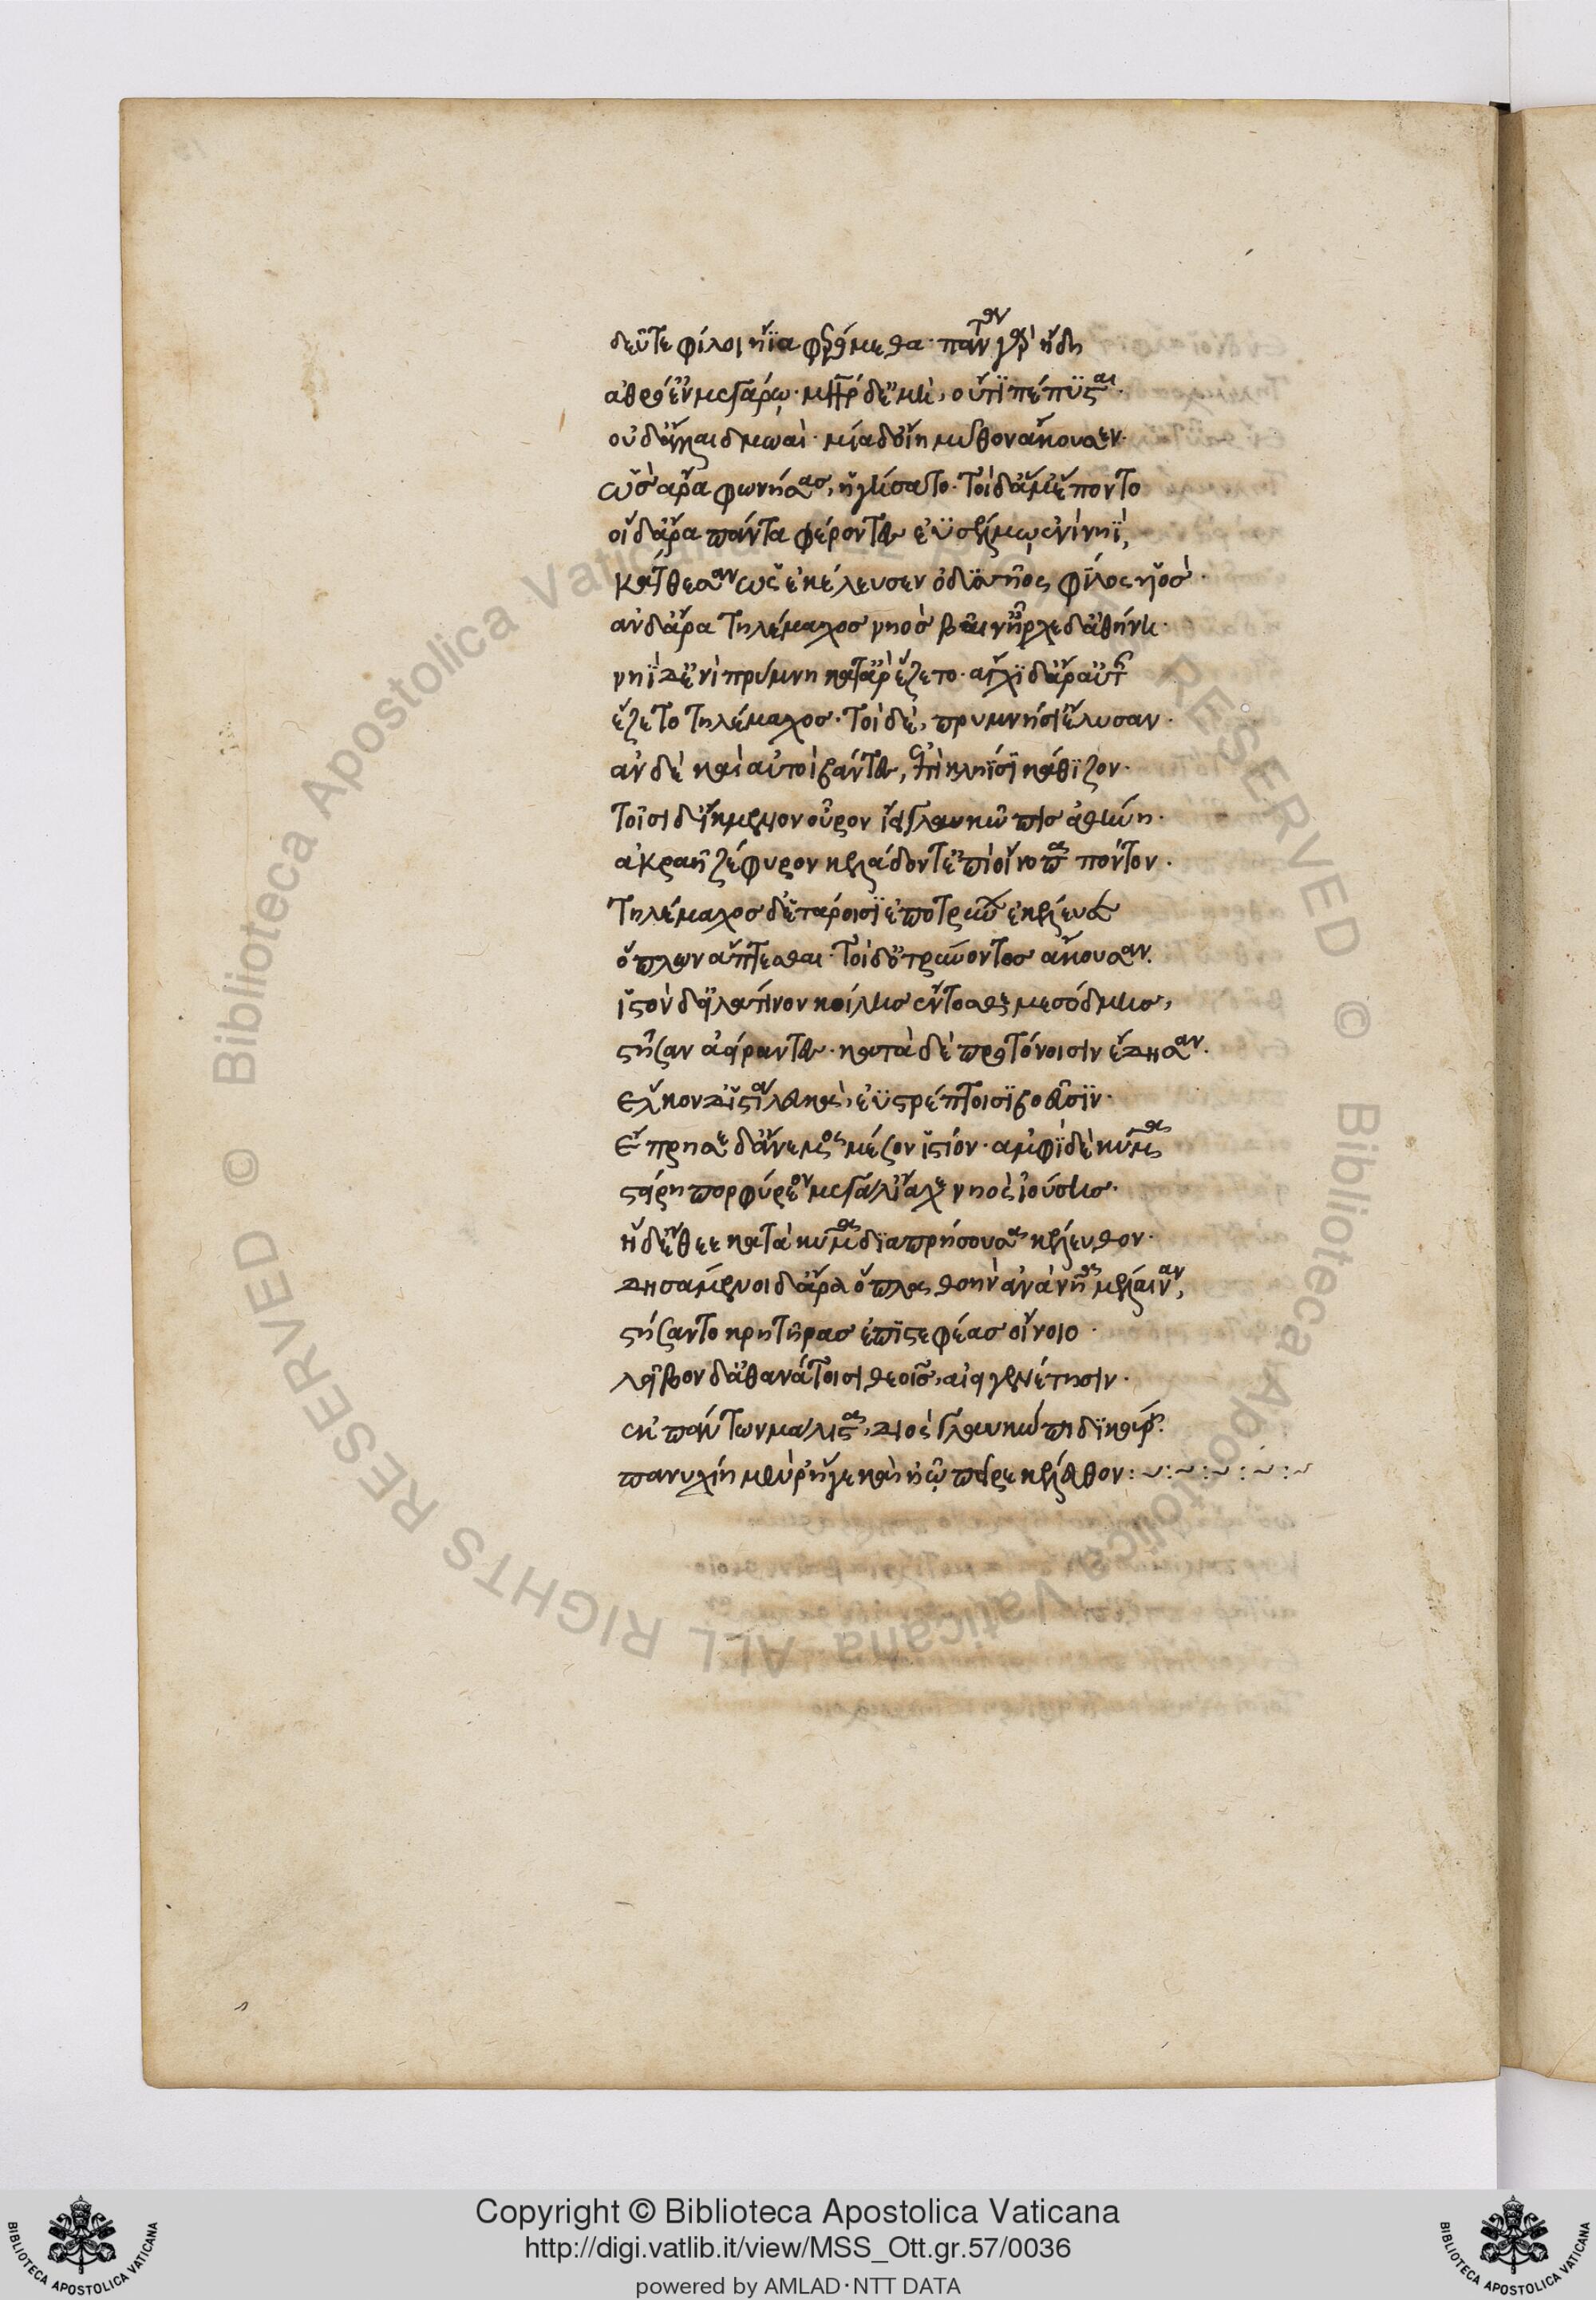 δεῦτε φίλοι ἤϊα φερώμεθα· πάντα γὰρ ἤδη
ἀθρό' ἐν μεγάρῳ· μήτηρ δ' ἐμὴ, οὔτι πέπυσται·
οὐδ' ἄλλαι δμωαὶ· μία δ' οἴη μῦθον ἄκουσεν·
ὣς ἄρα φωνήσας, ἡγήσατο· τοὶ δ' ἅμ' ἕποντο
οἱ δ' ἄρα πάντα φέροντες ἐϋσέλμῳ ἐνὶ νηῒ,
κάτθεσαν ὡς ἐκέλευσεν ὀδυσσῆος φίλος υἱὸς·
ἂν δ' ἄρα τηλέμαχος νηὸς βαῖν' ἦρχε δ' ἀθήνη·
νηῒ δ' ἐνὶ πρύμνῃ κατ' ἂρ ἕζετο· ἄγχι δ' ἄρ' αὐτῆς
ἕζετο τηλέμαχος· τοὶ δὲ, πρυμνήσι' ἔλυσαν·
ἂν δὲ καὶ αὐτοὶ βάντες, ἐπὶ κληῖσι κάθιζον·
τοῖσι δ' ἴκμενον οὖρον ἵει γλαυκῶπις ἀθήνη·
ἀκραῆ ζέφυρον κελάδοντ' ἐπὶ οἴνοπα πόντον·
τηλέμαχος δ' ἑτάροισι ἐποτρύνων ἐκέλευσεν
ὅπλων ἅπτεσθαι· τοὶ δ' ὀτρύνοντος ἄκουσαν.
ἱστὸν δ' εἰλάτινον κοίλης ἔντοσθε μεσόδμης,
στῆσαν ἀείραντες· κατὰ δὲ προτόνοισιν ἔδησαν.
ἕλκον δ' ἱστία λευκὰ, ἐϋστρέπτοισι βοεῦσιν·
ἔπρησε δ' ἄνεμος μέσον ἱστίον· ἀμφὶ δὲ κῦμα
στείρῃ πορφύρεον μεγάλ' ἴαχε νηὸς ἰούσης·
ἡ δ' ἔθεε κατὰ κῦμα διαπρήσσουσα κέλευθον·
δησάμενοι δ' ἄρα ὅπλα, θοὴν ἀνὰ νῆα μέλαιναν,
στήσαντο κρητῆρας ἐπιστεφέας οἴνοιο·
λεῖβον δ' ἀθανάτοισι θεοῖς, αἰειγενέτησιν·
ἐκ πάντων μάλιστα, διὸς γλαυκώπιδι κούρῃ·
παννυχίη μέν ῥ' ἥγε καὶ ἠῶ πεῖρε κέλευθον:~:~:~:~:~
Copyright © Biblioteca Apostolica Vaticana
http://digi.vatlib.it/view/MSS_Ott.gr.57/0036
powered by AMLAD·NTT DATA
© Biblioteca Apostolica Vaticana ALL RIGHTS RESERVED © Biblioteca Apostolica Vaticana ALL RIGHTS RESERVED
BIBLIOTECA APOSTOLICA VATICANA
BIBLIOTECA APOSTOLICA VATICANA